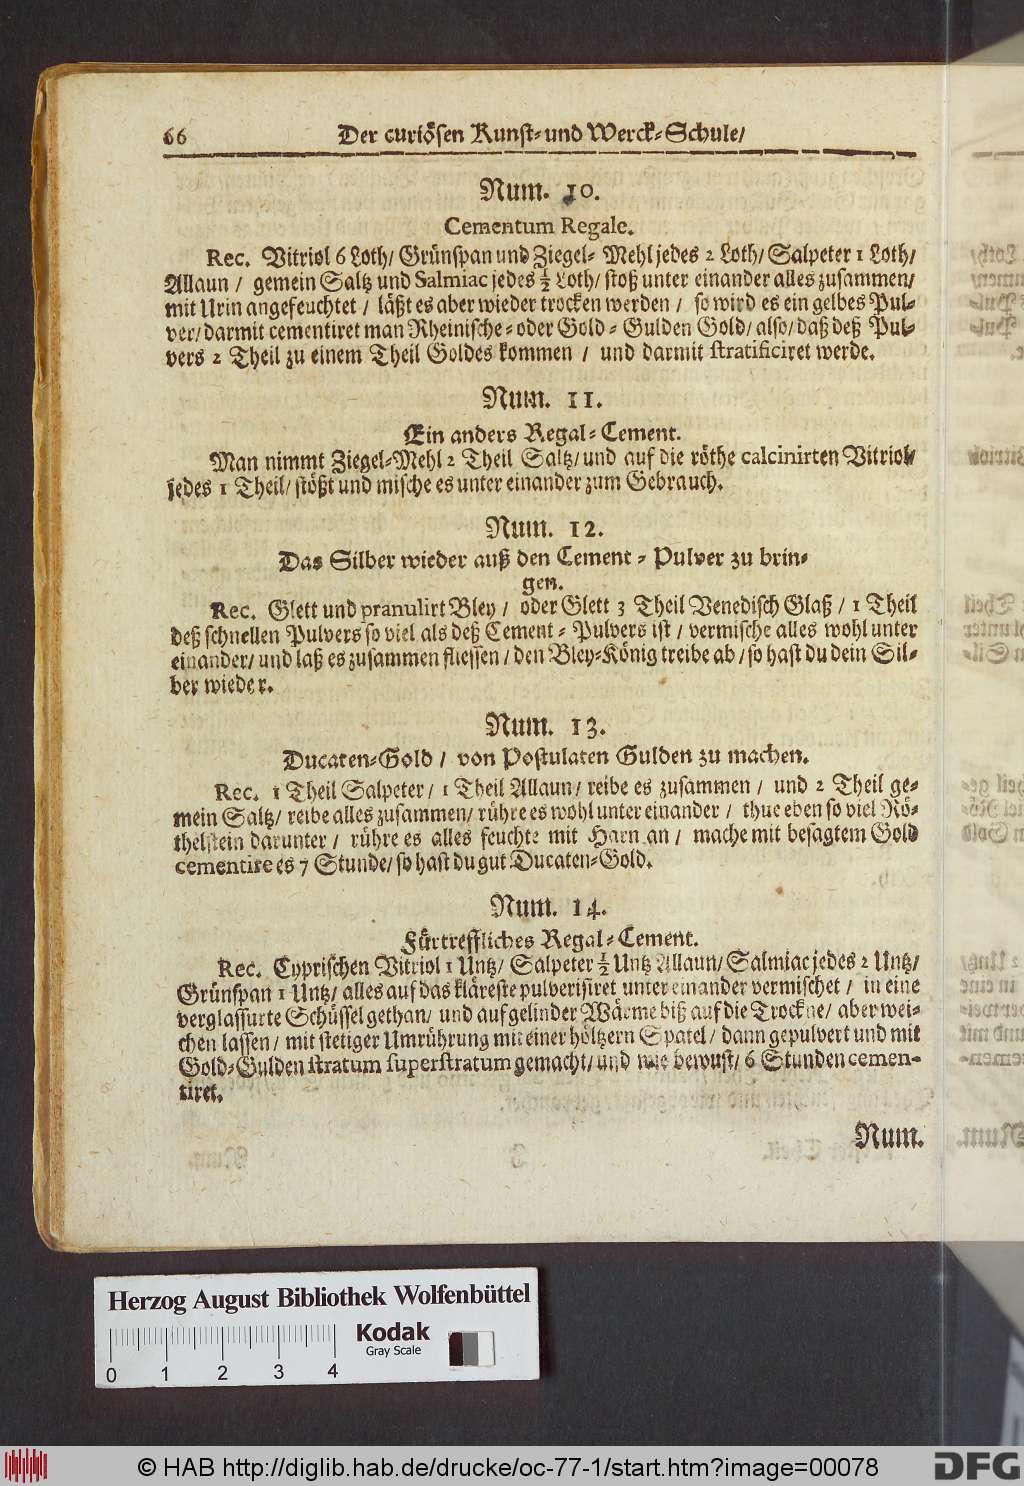 66 Der curiösen Kunst- und Werck-Schule/
Num. 10.
Cementum Regale.
Rec. Vitriol 6 Loth/ Grünspan und Ziegel- Mehl jedes 2 Loth/ Salpeter 1 Loth/
Allaun / gemein Saltz und Salmiac jedes ½ Loth/ stoß unter einander alles zusammen/
mit Urin angefeuchtet / läßt es aber wieder trocken werden / so wird es ein gelbes Pul-
ver/ darmit cementiret man Rheinische- oder Gold - Gulden Gold/ also/ daß deß Pul-
vers 2 Theil zu einem Theil Goldes kommen / und darmit stratificiret werde.
Num. 11.
Ein anders Regal-Cement.
Man nimmt Ziegel-Mehl 2 Theil Saltz/ und auf die röthe calcinirten Vitriol/
jedes 1 Theil/ stößt und mische es unter einander zum Gebrauch.
Num. 12.
Das Silber wieder auß den Cement - Pulver zu brin-
gen.
Rec. Glett und pranulirt Bley / oder Glett 3 Theil Venedisch Glaß / 1 Theil
deß schnellen Pulvers so viel als deß Cement - Pulvers ist / vermische alles wohl unter
einander/ und laß es zusammen fliessen / den Bley-König treibe ab / so hast du dein Sil-
ber wieder.
Num. 13.
Ducaten-Gold / von Postulaten Gulden zu machen.
Rec. 1 Theil Salpeter / 1 Theil Allaun / reibe es zusammen / und 2 Theil ge-
mein Saltz/ reibe alles zusammen/ rühre es wohl unter einander / thue eben so viel Rö-
thelstein darunter / rühre es alles feuchte mit Harn an / mache mit besagtem Gold
cementire es 7 Stunde/ so hast du gut Ducaten-Gold.
Num. 14.
Fürtreffliches Regal-Cement.
Rec. Cyprischen Vitriol 1 Untz/ Salpeter ½ Untz Allaun/ Salmiac jedes 2 Untz/
Grünspan 1 Untz/ alles auf das kläreste pulverisiret unter einander vermischet / in eine
verglassurte Schüssel gethan/ und auf gelinder Wärme biß auf die Trockne/ aber wei-
chen lassen / mit stetiger Umrührung mit einer höltzern Spatel / dann gepulvert und mit
Gold-Gulden stratum superstratum gemacht/ und wie bewust/ 6 Stunden cemen-
tiret.
Num.
Herzog August Bibliothek Wolfenbüttel
Kodak
Gray Scale
0 1 2 3 4
© HAB http://diglib.hab.de/drucke/oc-77-1/start.htm?image=00078
DFG